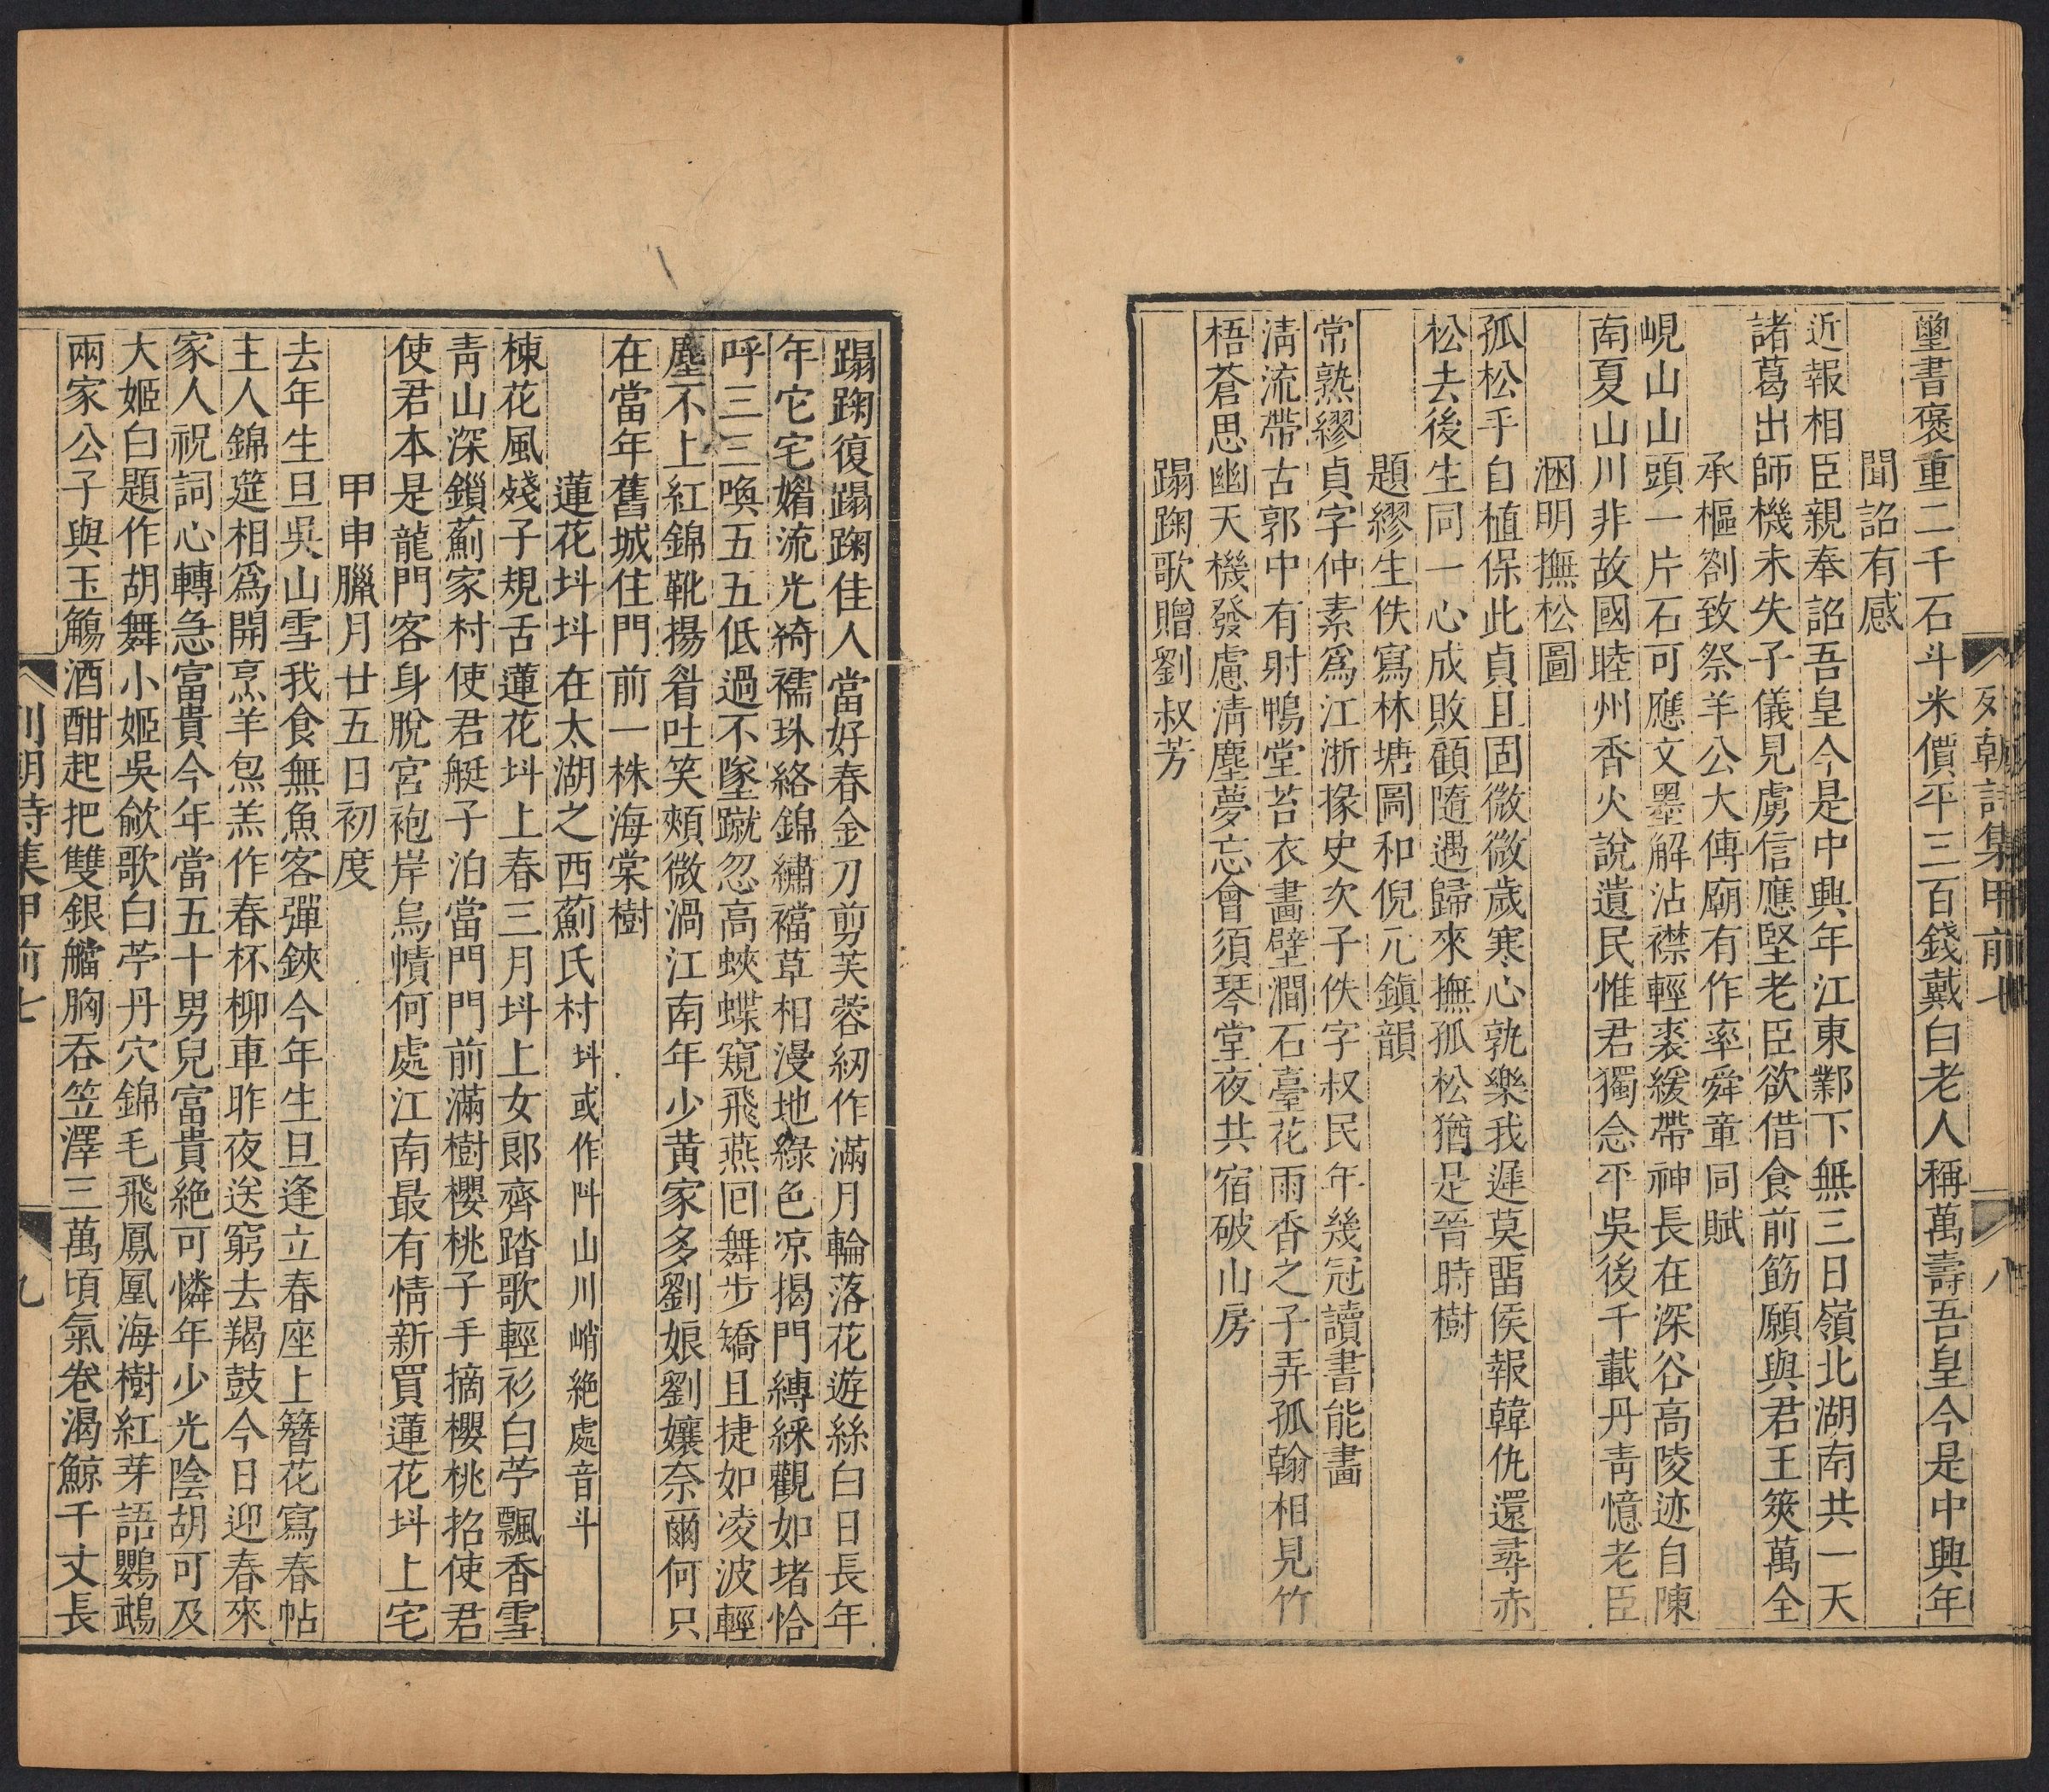 列朝詩集甲前七
八
璽書褒重二千石斗米價平三百錢戴白老人稱萬壽吾皇今是中興年
聞詔有感
近報相臣親奉詔吾皇今是中興年江東鄴下無三日嶺北湖南共一天
諸葛出師機未失子儀見虜信應堅老臣欲借食前筯願與君王筴萬全
承樞劄致祭羊公大傳廟有作率舜童同賦
峴山山頭一片石可應文墨解沾襟輕裘緩帶神長在深谷高陵迹自陳
南夏山川非故國睦州香火說遺民惟君獨念平吳後千載丹靑憶老臣
淵明撫松圖
孤松乎自植保此貞且固微微歲寒心孰樂我遲莫畱侯報韓仇還尋赤
松去後生同一心成敗顧隨遇歸來撫孤松猶是晉時樹
題繆生佚寫林塘圖和倪元鎭韻
常熟繆貞字仲素爲江浙掾史次子佚字叔民年幾冠讀書能畵
淸流帶古郭中有射鴨堂苔衣畵壁澗石臺花雨香之子弄孤翰相見竹
梧蒼思幽天機發慮淸塵夢忘會須琴堂夜共宿破山房
蹋踘歌贈劉叔芳
蹋踘復蹋踘佳人當好春金刀剪芙蓉紉作滿月輪落花遊絲白日長年
年它宅婿流光猗襦珠絡錦繡襠草相漫地綠色凉揭門縛綵觀如堵恰
呼三三喚五五低過不墜蹴忽高蛺蝶窺飛燕回舞步矯且捷如凌波輕
塵不上紅錦靴揚眥吐笑頰微渦江南年少黃家多劉娘劉孃奈爾何只
在當年舊城住門前一株海棠樹
蓮花㘰㘰在太湖之西薊氏村㘰或作阧山川峭絶處音斗
楝花風殘子規舌蓮花㘰上春三月㘰上女郞齊踏歌輕衫白苧飄香雪
靑山深鎖薊家村使君艇子泊當門門前滿樹櫻桃子手摘櫻桃招使君
使君本是龍門客身脫宮袍岸烏幘何處江南最有情新買蓮花㘰上宅
甲申臘月廿五日初度
去年生旦吳山雪我食無魚客彈鋏今年生旦逢立春座上簪花寫春帖
主人錦筵相爲開烹羊炰羔作春杯柳車昨夜送窮去羯鼓今日迎春來
家人祝詞心轉急富貴今年當五十男兒富貴絶可憐年少光陰胡可及
大姬白題作胡舞小姬吳歈歌白苧丹穴錦毛飛鳳凰海樹紅芽語鸚鵡
兩家公子與玉觴酒酣起把雙銀艡胸吞笠澤三萬頃氣卷渴鯨千丈長
列朝詩集甲前七
九